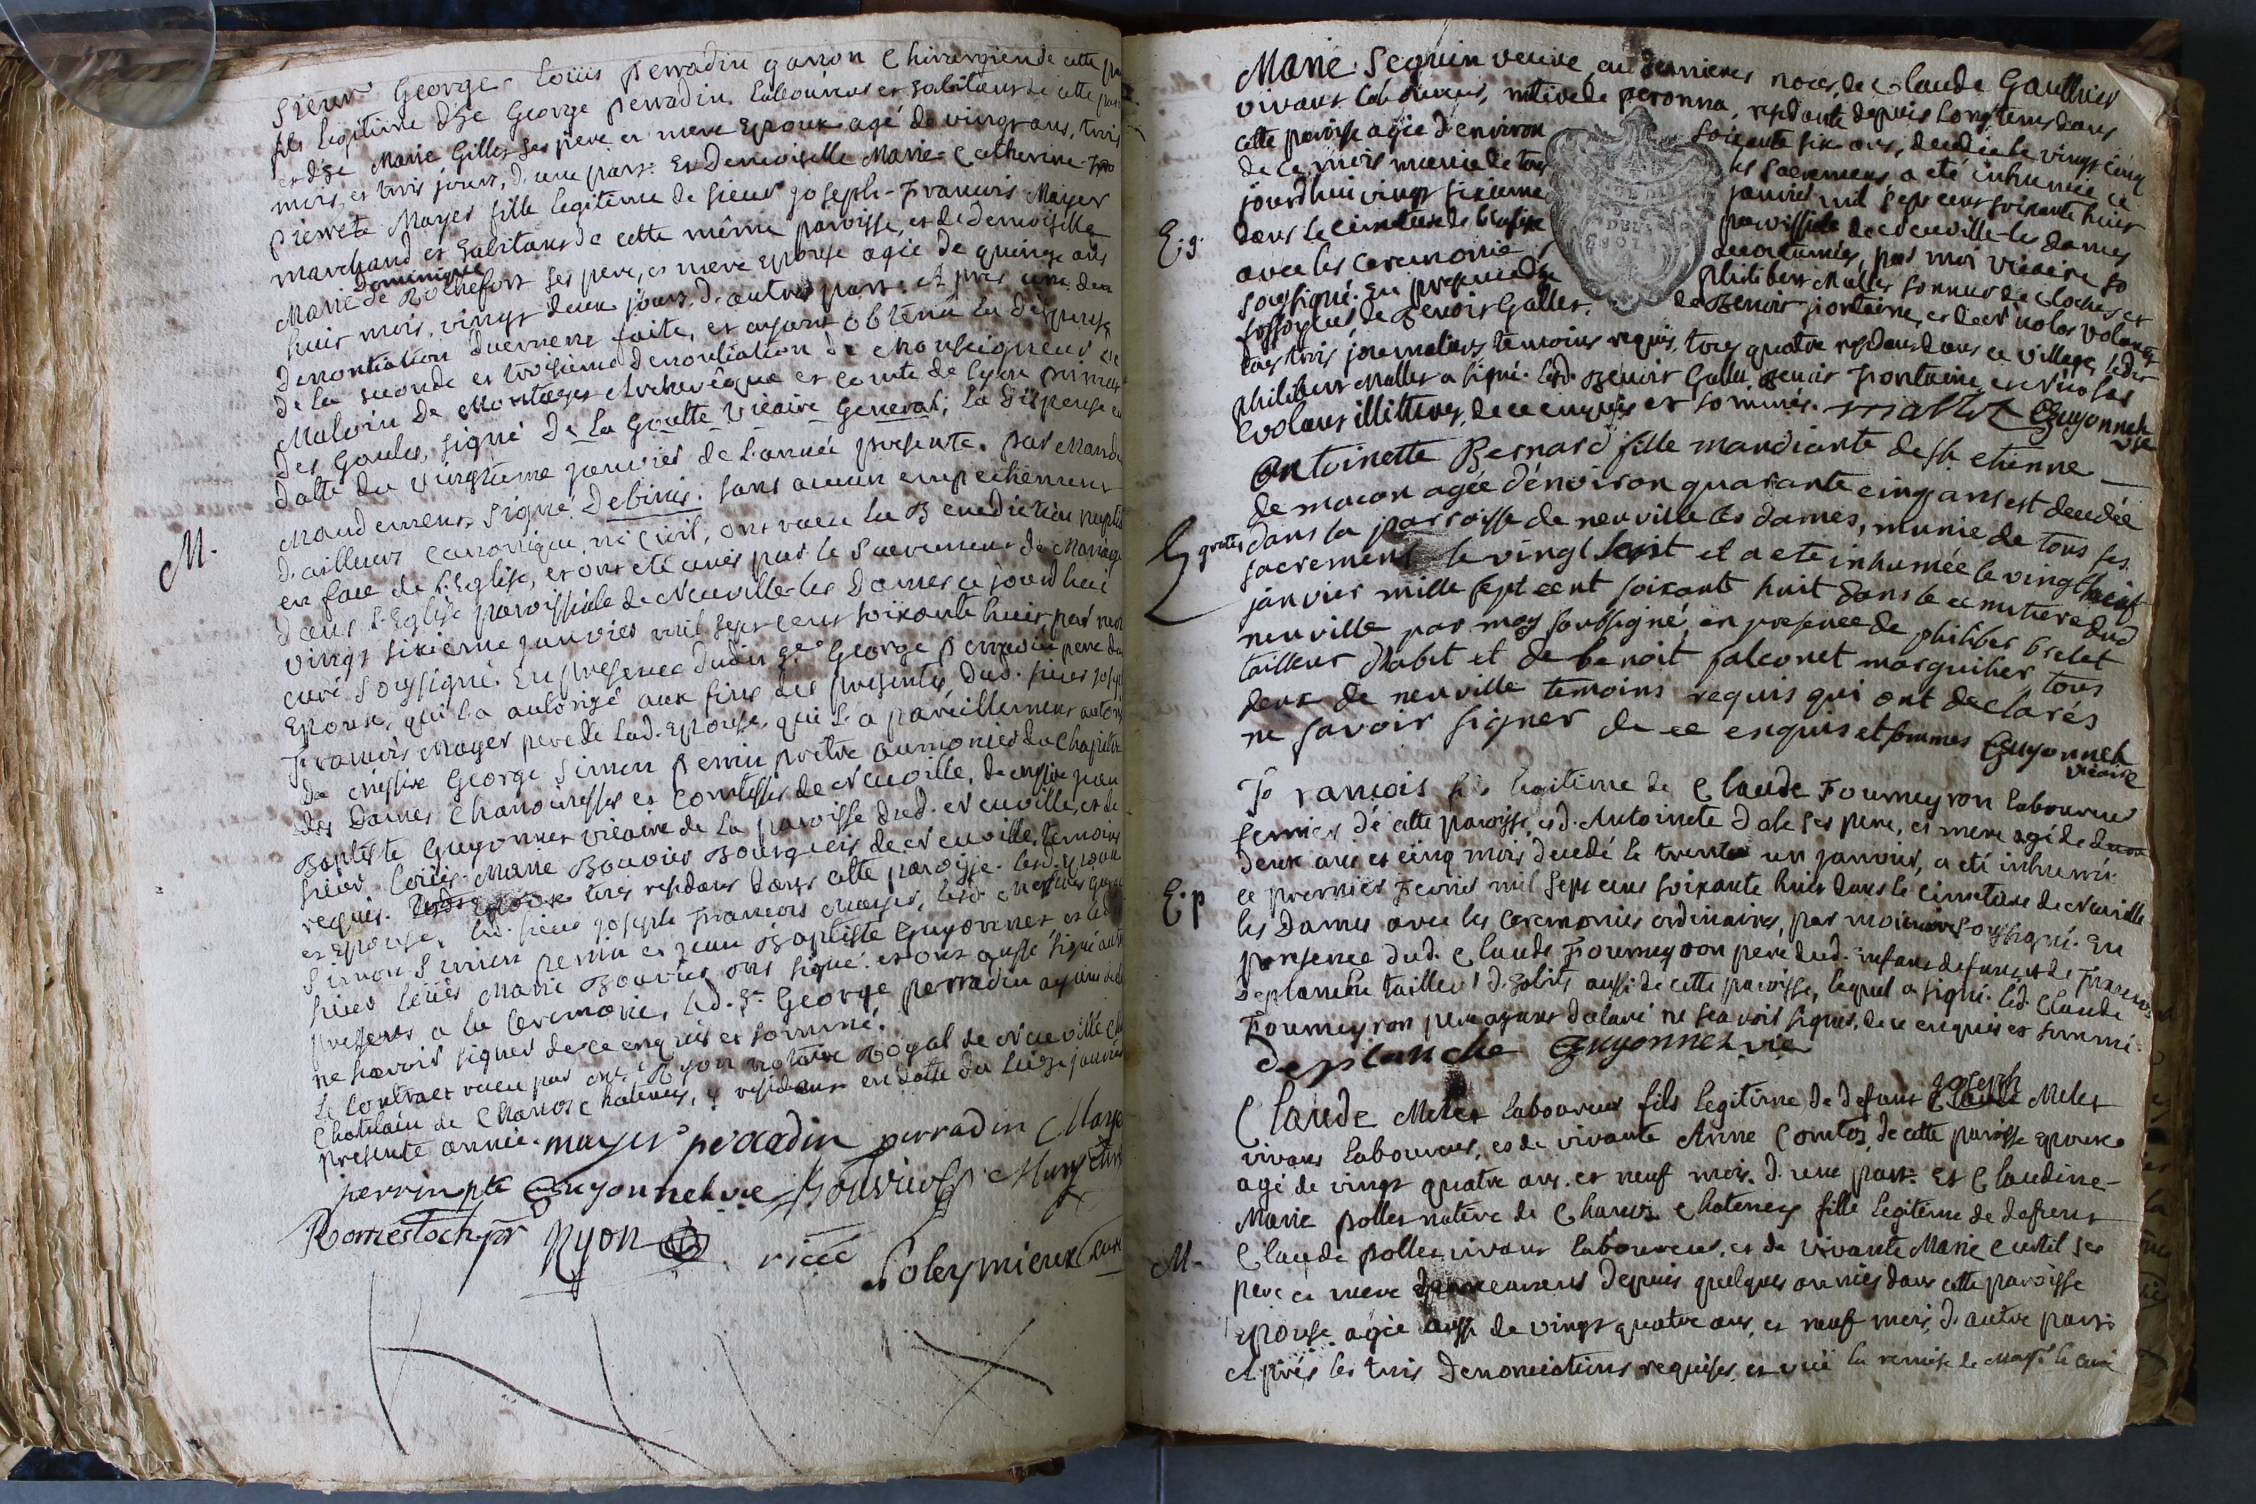 Sieur George Loüis Perradin garson Chirurgien de cette
fils legitime d'sr George Perradin Laboureur et habitant de cette
et de Marie Gillet ses pere et mere Epoux agé de vingt ans, trois
mois, et trois jours, d'une part. Et Demoiselle Marie Catherine
Pierrete Mayer fille legitime de sieur Joseph-Francois Mayer
marchand et habitant de cette même paroisse, et de demoiselle
Dominique
Marie de Rochefort ses pere, et mere epouse agée de quinze ans
huit mois, vingt deux jours, d'autre part. et pres une
denontiation duement faite, et ayant obtenu la dispense
de la seconde et troisieme denontiation de Monseigneur de
Malvin de Montazet Archevêque et comte de Lyon primat
des Gaules, signé De La Goutte vicaire General, la dispense
datte du vingtieme janvier de l'année presente. par Mande
Mandement signé Debinis. sans aucun empechement
d'ailleurs canonique, ni civil, ont recu la Benediction nuptia
en face de l'Eglise, et ont été unis par le Sacrement de Mariage
M.
dans l'Eglise paroissiale de Neuville-les Dames ce jourd'hui
vingt sixieme janvier mil sept cent soixante huit par
curé soussigné. En presence dudit sr George Perradin pere
Epoux, qui l'a autorisé aux fins des presentes, dud. sieur
Francois Mayer pere de lad. Epouse, qui l'a pareillement
de Messire George Simon Perrin prêtre aumonier du Chapitre
des Dames Chanoinesses et Comtesses de Neuville, de messire jean
Baptiste Guyonnet vicaire de la paroisse dud. Neuville, et de
sieur Loüis Marie Bouvier Bourgeois de Neuville temoins
requis. tous residans dans cette paroisse. lesd. Epoux
et Epouse, led. sieur Joseph Francois Mayer, lesd. Messires
Simon Perrin et jean Baptiste Guyonnet et led.
sieur Loüis Marie Bouvier ont signé. et ont aussi signé
presens a la ceremonie, led. sr George Perradin ayant
ne savoir signer de ce enquis et sommé.
Le contract recu par Me Ryon notaire Royal de Neuville
Chatelain de Chanoz Chatenay, y residant en datte du seize janvier
presente année. mayer perradin perradin
perrin ptre Guyonnet vic Bouvier
Ryon
Poleymieux curé
Marie Seguin veuve en dernieres noces de Claude Gauthier
vivant laboureur, native de peronna residante depuis longtems dans
cette paroisse agée d'environ soixante six ans, decedée le vingt cinq
de ce mois munie de tous les sacremens a eté inhumée ce
jourd'hui vingt sixieme janvier mil sept cent soixante huit
E. g.
dans le cimetiere de l'eglise paroissiale de Neuville-les dames
avec les ceremonies accoutumées, par moi vicaire so
soussigné. En presence de philibert Mallet sonneur de cloches et
fossoyeur, de Benoit Gallet, de Benoit fontaine, et de Nicolas Volant
tous trois journaliers, temoins requis, tous quatre residans dans ce village, led.
philibert Mallet a signé. Lesd. Benoit Gallet, Benoit Fontaine, et Nicolas
Volant illitteres, de ce enquis et sommés. mallet Guyonnet
vic
Antoinette Bernard fille mandiante de st etienne
de macon agée d'environ quarante cinq ans est decedée
gratis dans la parroisse de neuville les dames, munie de tous ses
sacrements le vingt sept et a ete inhumée le vingt huit
janvier mille sept cent soixante huit dans le cimetiere dud
neuville par moy soubsigné, en presence de philiber brelet
tailleur d'habit et de benoit falconet marguilier tous
deux de neuville temoins requis qui ont declarés
ne savoir signer de ce enquis et sommes Guyonnet
vicaire
Francois fils legitime de Claude Fourneyron laboureur
fermier de cette paroisse, et d. Antoinete Dale ses pere, et mere agé de
deux ans et cinq mois decedé le trente un janvier, a eté inhumé
E. p
ce premier Fevrier mil sept cent soixante huit dans le cimetiere de Neuville
les Dames avec les ceremonies ordinaires, par moi vicaire soussigné. En
presence dud. Claude Fourneyron pere dud. enfant defunt et de Francois
Deplanche tailleur d'habits aussi de cette paroisse, lequel a signé. led. Claude
Fourneyron pere ayant declaré ne scavoir signer, de ce enquis et sommé.
Deplanche Guyonnet vic
Joseph
Claude Melet laboureur fils legitime de defunt Melet
vivant laboureur, et de vivante Anne Comtet de cette paroisse epoux
agé de vingt quatre ans, et neuf mois, d'une part. Et Claudine-
Marie pollet native de Chanoz Chatenay fille legitime de defunt
M.
Claude pollet vivant laboureur, et de vivante Marie Curtil ses
pere et mere demeurans depuis quelques années dans cette paroisse
epouse agée aussi de vingt quatre ans, et neuf mois, d'autre part.
Après les trois denonciations requises, et vuë la remise de Messe le curé